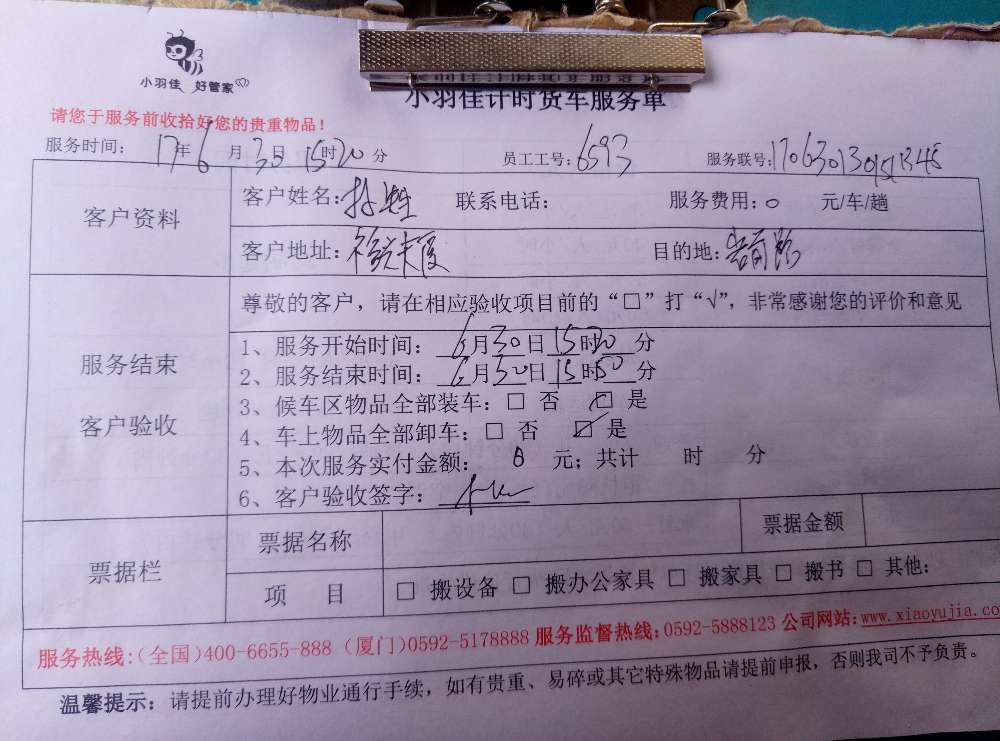 小羽佳 好管家
小羽佳计时货车服务单
请您于服务前收拾好您的贵重物品！
服务时间： 17年6月30日15时20分 员工工号：6593 服务联号：
客户资料
客户姓名： 联系电话： 服务费用：0 元/车/趟
客户地址： 目的地：
尊敬的客户，请在相应验收项目前的“□”打“√”，非常感谢您的评价和意见
服务结束
客户验收
1、服务开始时间：6月30日15时20分
2、服务结束时间：6月30日15时50分
3、候车区物品全部装车：□ 否 ☑ 是
4、车上物品全部卸车：□ 否 ☑ 是
5、本次服务实付金额： 元；共计 时 分
6、客户验收签字：
票据栏
票据名称 票据金额
项 目 □ 搬设备 □ 搬办公家具 □ 搬家具 □ 搬书 □ 其他：
服务热线：(全国)400-6655-888 (厦门)0592-5178888 服务监督热线：0592-5888123 公司网站：www.xiaoyujia.co
温馨提示：请提前办理好物业通行手续，如有贵重、易碎或其它特殊物品请提前申报，否则我司不予负责。